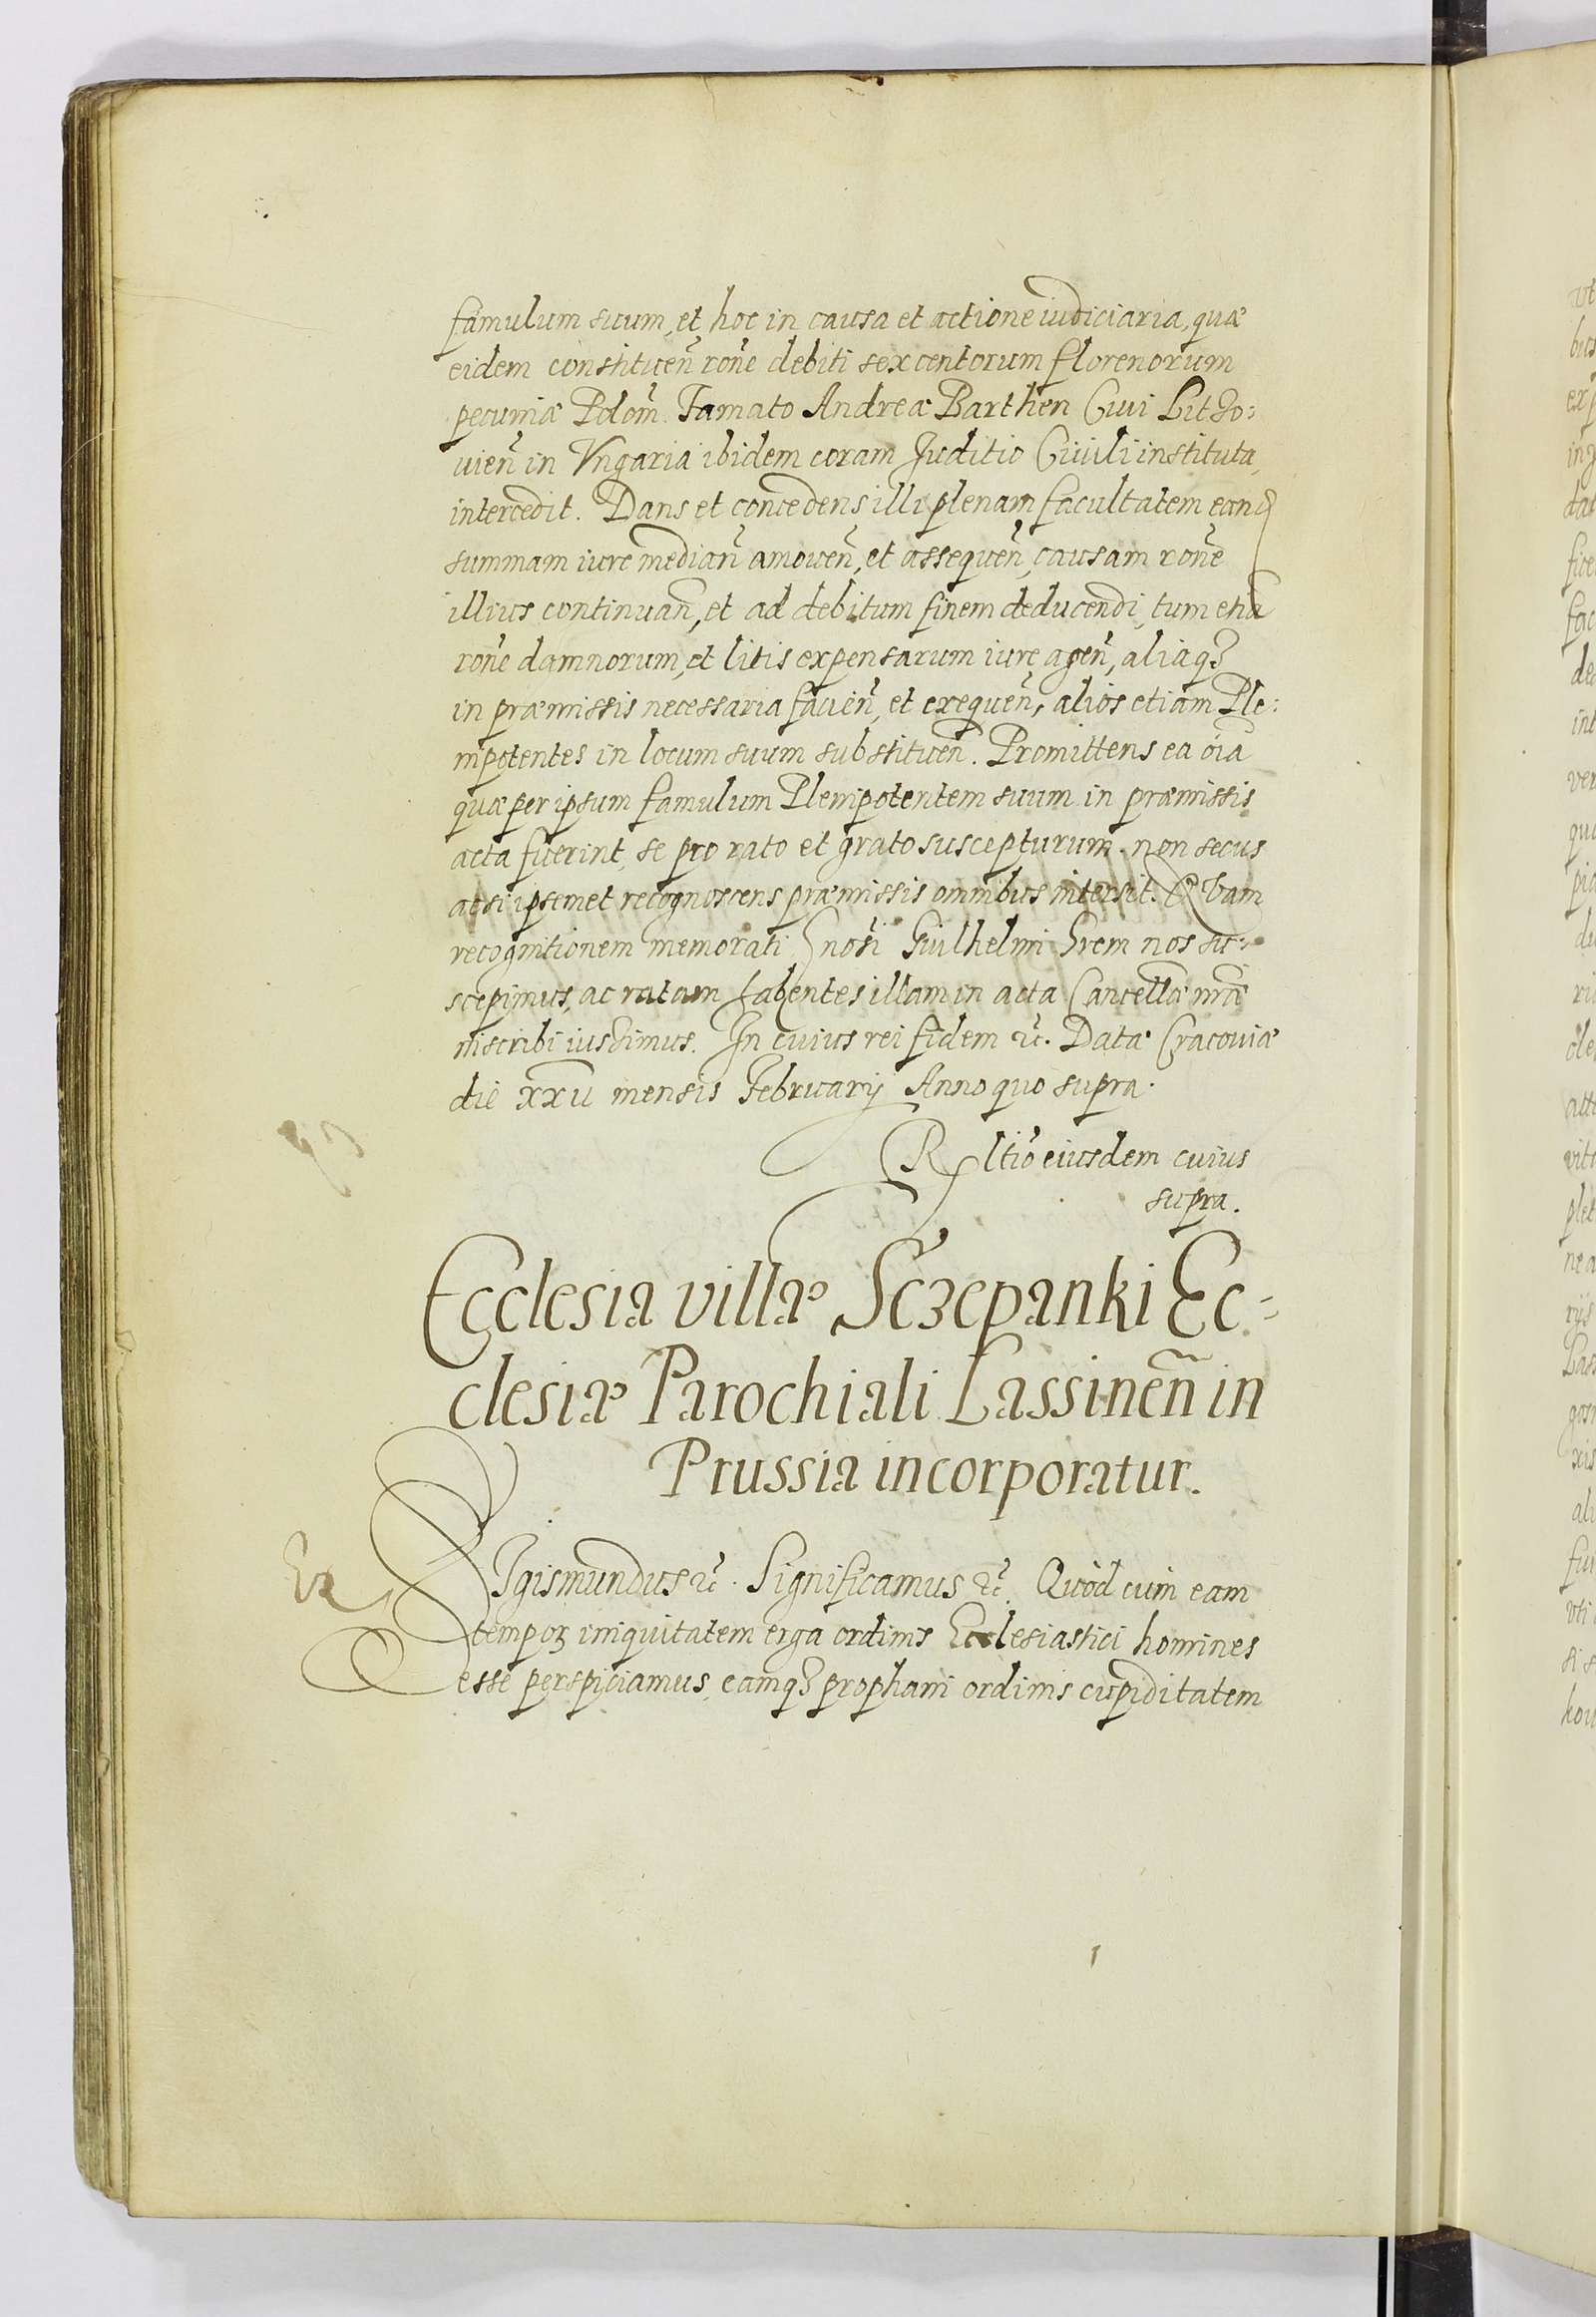 famulum suum, et hoc in causa et actione iudiciaria, quæ
eidem constituen̄ rōne debiti sexcentorum florenorum
pecuniæ Polon̄. Famato Andreæ Barthen Ciui Litho:
uien̄ in Vngaria ibidem coram Juditio Ciuili instituta,
intercedit. Dans et concedens illi plenam facultatem eand
summam iure median̄ amouen̄, et assequen̄, causam rōne
illius continuan̄, et ad debitum finem deducendi, tum etiā
rōne damnorum, et litis expensarum iure agen̄, aliaqȝ
in præmissis necessaria facien̄, et exequen̄, alios etiam Ple:
nipotentes in locum suum substituen̄. Promittens ea oīa
quæ per ipsum famulum Plenipotentem suum in præmissis
acta fuerint, se pro rato et grato suscepturum. non secus
ac si ipsemet recognoscens præmissis omnibus intersit. Quam
recognitionem memorati Gnosi Guilhelmi Orem nos su:
scepimus, ac ratam habentes illam in acta Cancellæ nr̄æ
inscribi iussimus. In cuius rei fidem &c. Datæ Cracouiæ
die XXII mensis Februarij Anno quo supra.
Rltio eiusdem cuius
supra.
Ecclesia villæ Sczepanki Ec=
clesiæ Parochiali Lassinen̄ in
Prussia incorporatur.
Ex
SIgismundus &c. Significamus &c. Quòd cum eam
tempoȝ iniquitatem erga ordinis Ecclesiastici homines
esse perspiciamus, eamqȝ prophani ordinis cupiditatem